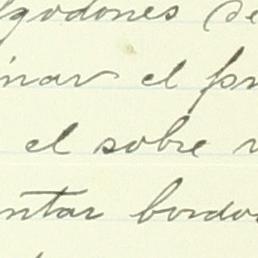 godones de
inar el pr
el sobre
ntar bordo